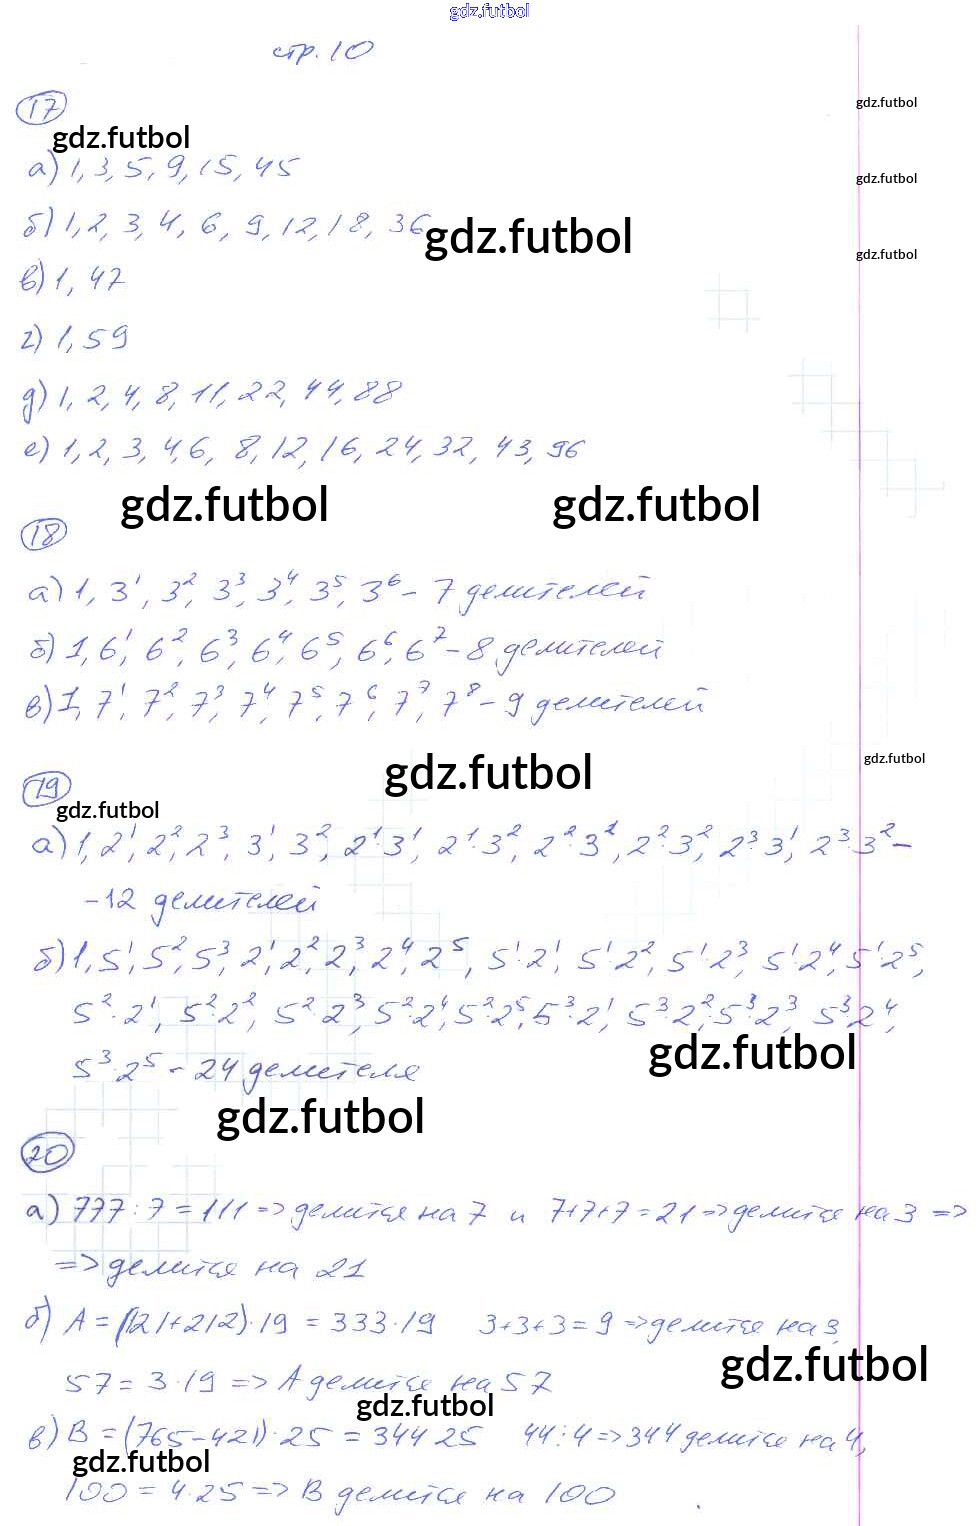 gdz.futbol
стр. 10
17
gdz.futbol
gdz.futbol
а) 1, 3, 5, 9, 15, 45
gdz.futbol
б) 1, 2, 3, 4, 6, 9, 12, 18, 36
gdz.futbol
gdz.futbol
в) 1, 47
г) 1, 59
д) 1, 2, 4, 8, 11, 22, 44, 88
е) 1, 2, 3, 4, 6, 8, 12, 16, 24, 32, 43, 96
gdz.futbol gdz.futbol
18
а) 1, 3¹, 3², 3³, 3⁴, 3⁵, 3⁶ – 7 делителей
б) 1, 6¹, 6², 6³, 6⁴, 6⁵, 6⁶, 6⁷ – 8 делителей
в) 1, 7¹, 7², 7³, 7⁴, 7⁵, 7⁶, 7⁷, 7⁸ – 9 делителей
gdz.futbol
gdz.futbol
19
gdz.futbol
а) 1, 2¹, 2², 2³, 3¹, 3², 2¹·3¹, 2¹·3², 2²·3¹, 2²·3², 2³·3¹, 2³·3² –
– 12 делителей
б) 1, 5¹, 5², 5³, 2¹, 2², 2³, 2⁴, 2⁵, 5¹·2¹, 5¹·2², 5¹·2³, 5¹·2⁴, 5¹·2⁵,
5²·2¹, 5²·2², 5²·2³, 5²·2⁴, 5²·2⁵, 5³·2¹, 5³·2², 5³·2³, 5³·2⁴,
gdz.futbol
5³·2⁵ – 24 делителя
gdz.futbol
20
а) 777 : 7 = 111 => делится на 7 и 7+7+7=21 => делится на 3 =>
=> делится на 21
б) А = (121+212)·19 = 333·19 3+3+3=9 => делится на 3,
gdz.futbol
57 = 3·19 => А делится на 57
gdz.futbol
в) В = (765–421)·25 = 344·25 44:4 => 344 делится на 4,
gdz.futbol
100 = 4·25 => В делится на 100